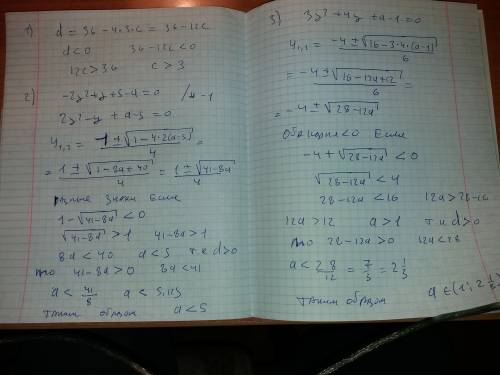 1) d = 36 - 4·3·c = 36 - 12c
d<0   36-12c<0
12c>36   c>3
2) -2y²+y+5-a=0   /*-1
2y²-y+a-5=0
y₁,₂ = 1±√(1-4·2(a-5)) / 4 =
= 1±√(1-8a+40) / 4 = 1±√(41-8a) / 4
разные знаки если
1-√(41-8a) <0
√(41-8a) >1   41-8a>1
8a<40   a<5   т.к d>0
то 41-8a>0   8a<41
a < 41/8   a<5,125
таким образом a<5
3) 3y²+4y+a-1=0
y₁,₂ = -4±√(16-3·4(a-1)) / 6
= -4±√(16-12a+12) / 6 =
= -4±√(28-12a)
Оба корня<0 Если
-4+√(28-12a) <0
√(28-12a) <4
28-12a<16   12a>28-16
12a>12   a>1   т.к d>0
то 28-12a>0   12a<28
a < 28/12 = 7/3 = 2 1/3
таким образом a∈(1; 2 1/3)